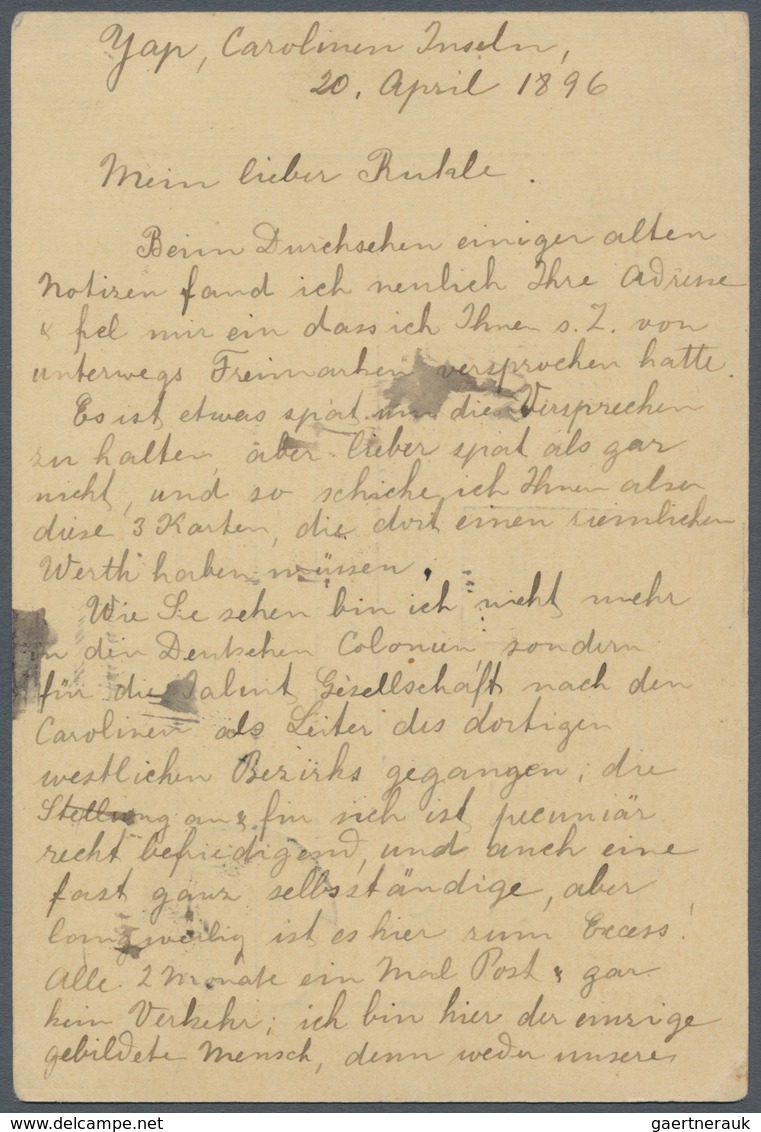 Yap, Carolinen Inseln,
20. April 1896
Mein lieber Ruhle.
Beim Durchsehen einiger alten
Notizen fand ich neulich Ihre Adresse
& fiel mir ein dass ich Ihnen s. Z. von
unterwegs Freimarken versprochen hatte.
Es ist etwas spät um die Versprechen
zu halten, aber lieber spät als gar
nicht, und so schicke ich Ihnen also
diese 3 Karten, die dort einen ziemlichen
Werth haben müssen.
Wie Sie sehen bin ich nicht mehr
in den Deutschen Colonien sondern
für die Jaluit Gesellschaft nach den
Carolinen als Leiter des dortigen
westlichen Bezirks gegangen; die
Stellung an & für sich ist pecuniär
recht befriedigend, und auch eine
fast ganz selbsständige, aber
langweilig ist es hier zum Excess!
Alle 2 Monate ein Mal Post & gar
kein Verkehr; ich bin hier der einzige
gebildete Mensch, denn weder unsere
www.delcampe.net
gaertnerauk